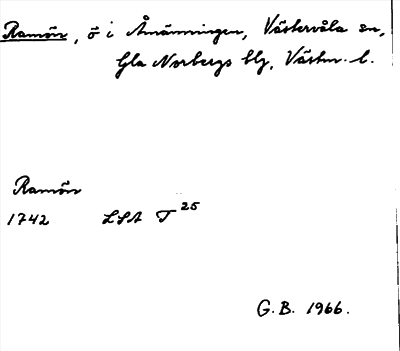 Ramön, ö i Åmänningen, Västervåla sn,
Gla Norbergs blg, Västm. l.
Ramön
1742 LSA T 25
G.B. 1966.